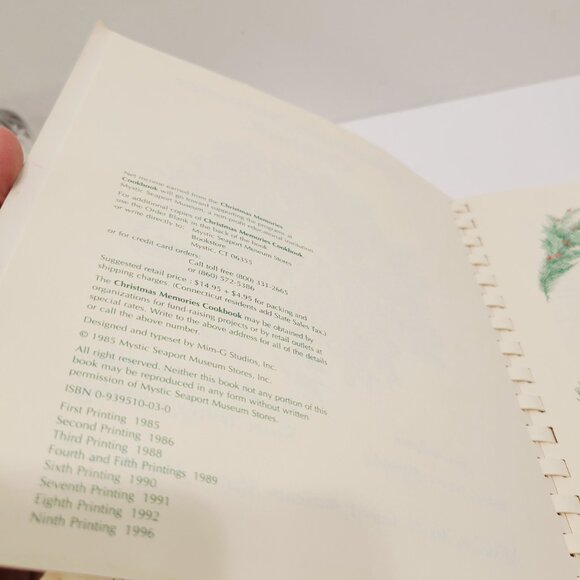 Net income earned from the Christmas Memories
Cookbook will go toward supporting the programs at
Mystic Seaport Museum, a non-profit educational institution
For additional copies of Christmas Memories Cookbook
use the Order Blank in the back of the book
or write directly to: Mystic Seaport Museum Stores
Bookstore
Mystic, CT 06355
or for credit card orders:
Call toll free (800) 331-2665
or (860) 572-5386
Suggested retail price : $14.95 + $4.95 for packing and
shipping charges. (Connecticut residents add State Sales Tax.)
The Christmas Memories Cookbook may be obtained by
organizations for fund-raising projects or by retail outlets at
special rates. Write to the above address for all of the details
or call the above number.
Designed and typeset by Mim-G Studios, Inc.
© 1985 Mystic Seaport Museum Stores, Inc.
All right reserved. Neither this book not any portion of this
book may be reproduced in any form without written
permission of Mystic Seaport Museum Stores.
ISBN 0-939510-03-0
First Printing 1985
Second Printing 1986
Third Printing 1988
Fourth and Fifth Printings 1989
Sixth Printing 1990
Seventh Printing 1991
Eighth Printing 1992
Ninth Printing 1996